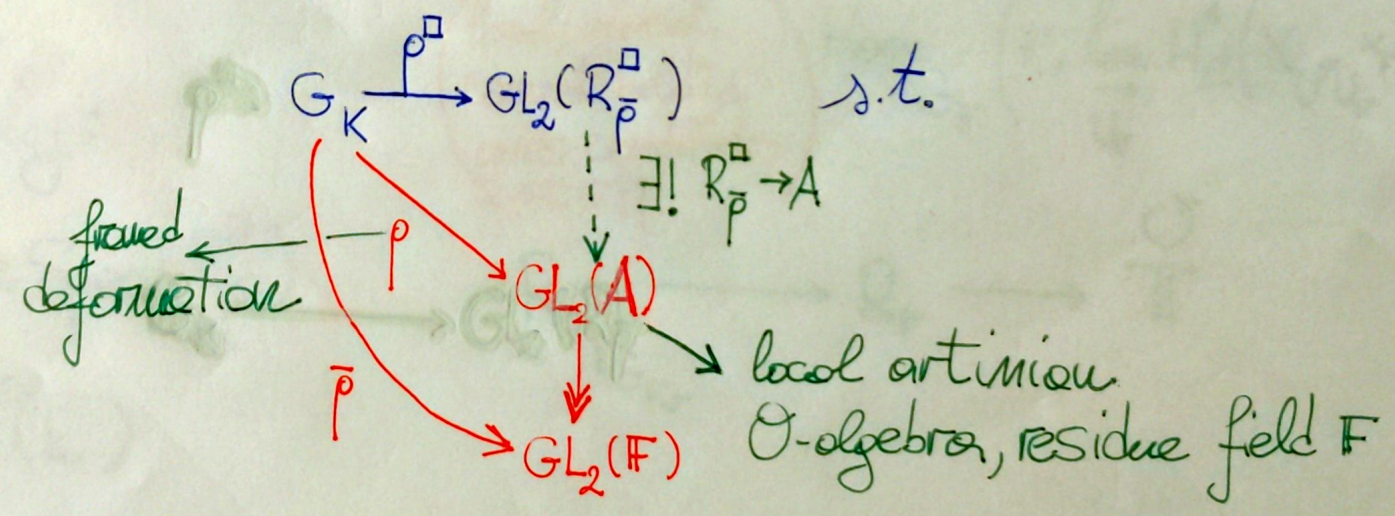 G_K → ρ^□ GL₂(R_ρ̄^□) s.t.
∃! R_ρ̄^□ → A
framed
deformation
ρ
GL₂(A)
local artinian
O-algebra, residue field 𝔽
ρ̄
GL₂(𝔽)